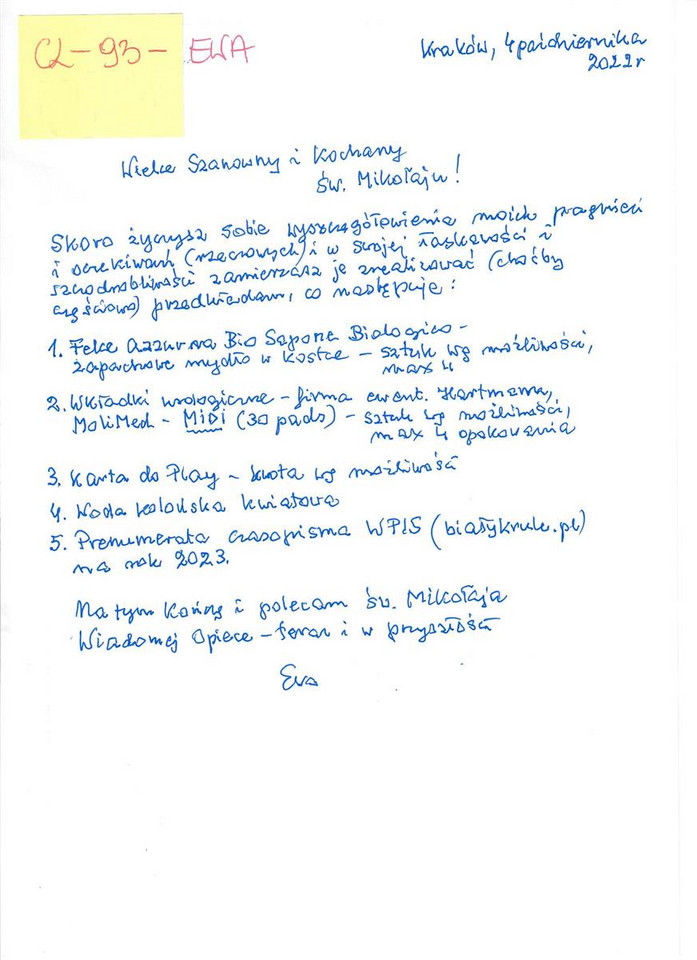 CL-93- EWA
Kraków, 4 października
2022 r
Wielce Szanowny i Kochany
Św. Mikołaju!
Skoro życzysz sobie wyszczególnienia moich pragnień
i oczekiwań (rzeczowych) i w swojej łaskawości i
szczodrobliwości zamierzasz je zrealizować (choćby
częściowo) przedkładam, co następuje:
1. Felce Azzurra Bio Sapone Biologico -
zapachowe mydło w kostce - sztuk wg możliwości,
max 4
2. Wkładki urologiczne - firma ewent. Hartmann,
MoliMed - MIDI (30 pads) - sztuk wg możliwości,
max 4 opakowania
3. Karta do Play - kwota wg możliwości
4. Woda kolońska kwiatowa
5. Prenumerata czasopisma WPIS (bialykruk.pl)
na rok 2023.
Na tym kończę i polecam św. Mikołaja
Wiadomej Opiece - teraz i w przyszłości
Ewa